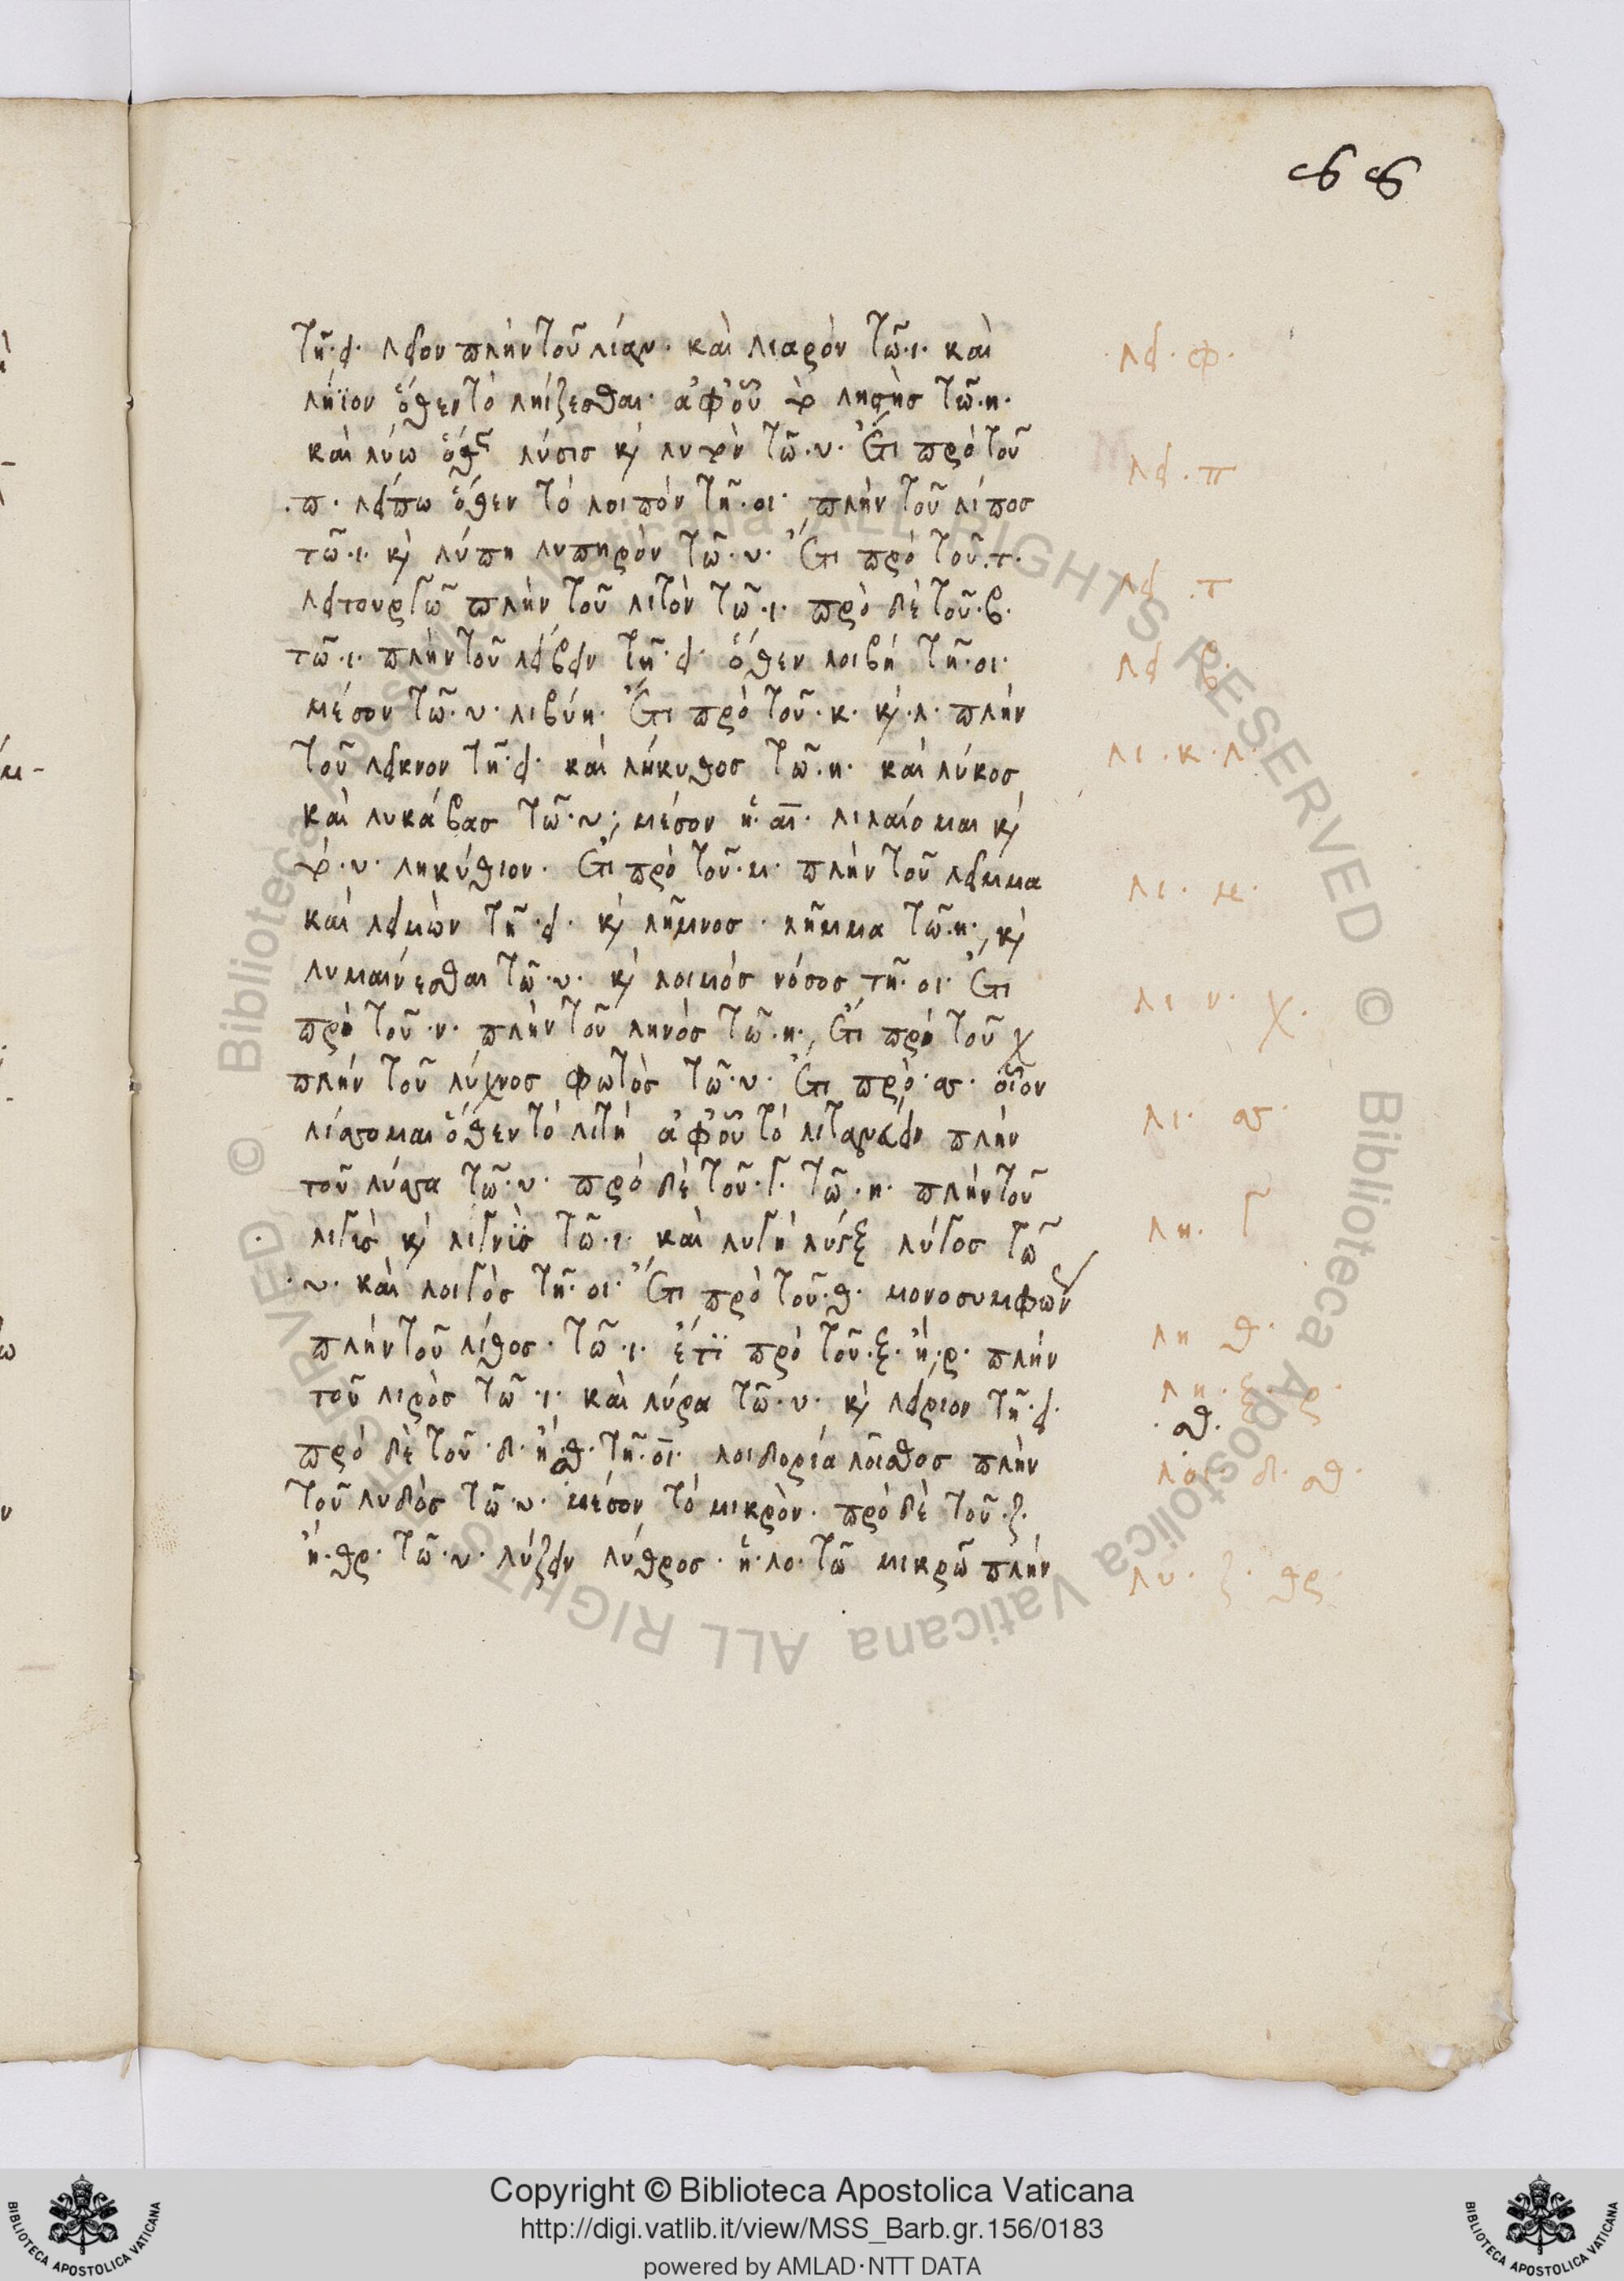 66
τῆ·ει· λεῖον πλὴν τοῦ λίαν· καὶ λιαρὸν τῶ·ι· καὶ
λήϊον ὅθεν τὸ ληίζεσθαι· ἀφ' οὗ λῃστὴς τῶ·η·
καὶ λύω ὅθεν λύσις κὶ τῶ·υ· Ἔτι πρὸ τοῦ
·π· λείπω ὅθεν τὸ λοιπὸν τῆ·οι· πλὴν τοῦ λίπος
τῶ·ι· κὶ λύπη λυπηρὸν τῶ·υ· Ἔτι πρὸ τοῦ·τ·
λειτουργῶ πλὴν τοῦ λιτὸν τῶ·ι· πρὸ δὲ τοῦ·β·
τῶ·ι· πλὴν τοῦ λείβειν τῆ·ει· ὅθεν λοιβή τῆ·οι·
μέσον τῶ·υ· λιβύη· Ἔτι πρὸ τοῦ·κ· κὶ·λ· πλὴν
τοῦ λεῖκνον τῆ·ει· καὶ λήκυθος τῶ·η· καὶ λύκος
καὶ λυκάβας τῶ·υ· μέσον ἡ·αι· λιλαίομαι κὶ
·υ· ληκύθιον· Ἔτι πρὸ τοῦ·μ· πλὴν τοῦ λεῖμμα
καὶ λειμὼν τῆ·ει· κὶ λῆμνος· λῆμμα τῶ·η·, κὶ
λυμαίνεσθαι τῶ·υ· κὶ λοιμός νόσος τῆ·οι· Ἔτι
πρὸ τοῦ·ν· πλὴν τοῦ ληνὸς τῶ·η·, Ἔτι πρὸ τοῦ χ
πλὴν τοῦ λύχνος φωτὸς τῶ·υ· Ἔτι πρὸ·σσ· οἷον
λίσσομαι ὅθεν τὸ λιτή ἀφ' οὗ τὸ λιτανεύειν πλὴν
τοῦ λύσσα τῶ·υ· πρὸ δὲ τοῦ·γ· τῶ·η· πλὴν τοῦ
λιγὺς κὶ λιγνὺς τῶ·ι· καὶ λυγξ λύγος τῶ
·υ· καὶ λοιγὸς τῆ·οι· Ἔτι πρὸ τοῦ·θ· μονοσυμφων
πλὴν τοῦ λίθος· τῶ·ι· ἔτι πρὸ τοῦ·ξ· ἢ·ρ· πλὴν
τοῦ λιρὸς τῶ·ι· καὶ λύρα τῶ·υ· κὶ λείριον τῆ·ει·
πρὸ δὲ τοῦ·δ· ἢ·σθ· τῆ·οι· λοιδορία λοῖσθος πλὴν
τοῦ λυδὸς τῶ·υ· μέσον τὸ μικρὸν· πρὸ δὲ τοῦ·ζ·
ἢ·θρ· τῶ·υ· λύζειν λύθρος· ἡ·λο· τῶ μικρῶ πλὴν
λει·φ·
λει·π
λει·τ
λει β·
λι·κ·λ·
λι·μ·
λι ν· χ·
λι· σσ·
λη· γ
λη θ·
λη·ξ·ρ·
·σθ·
λοι·δ·σθ·
λυ·ζ·θρ·
Copyright © Biblioteca Apostolica Vaticana
http://digi.vatlib.it/view/MSS_Barb.gr.156/0183
powered by AMLAD·NTT DATA